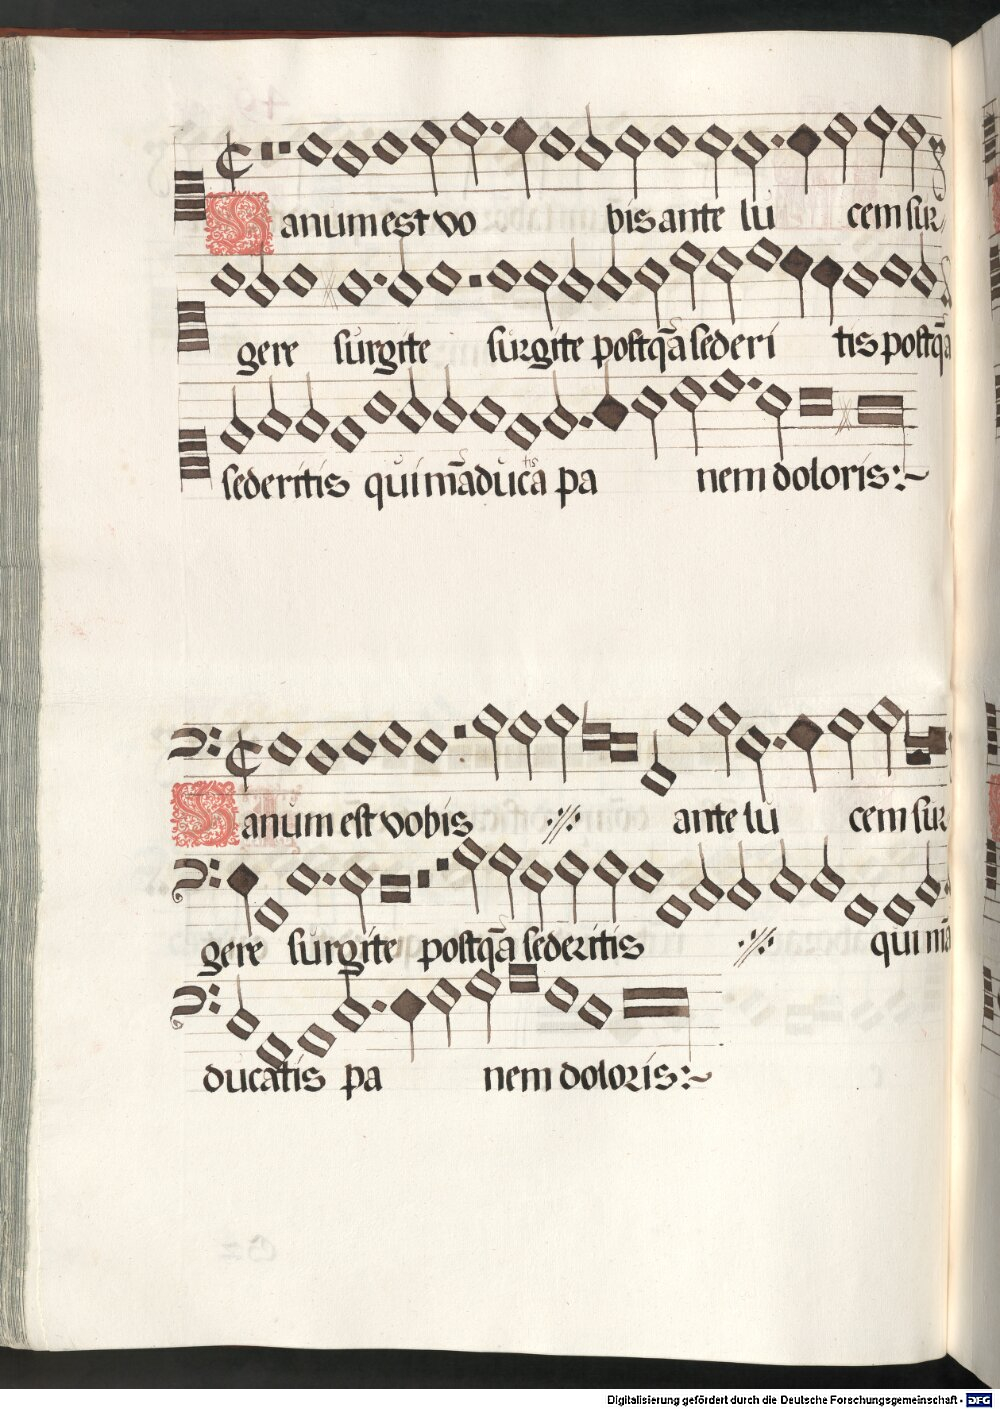 Vanum est vo bis ante lu cem sur
gere surgite surgite postq̃a sederi tis postq̃a
sederitis qui mãducatis pa nem doloris:~
Vanum est vobis ·//· ante lu cem sur
gere surgite postq̃a sederitis ·//· qui mã
ducatis pa nem doloris:~
Digitalisierung gefördert durch die Deutsche Forschungsgemeinschaft - DFG